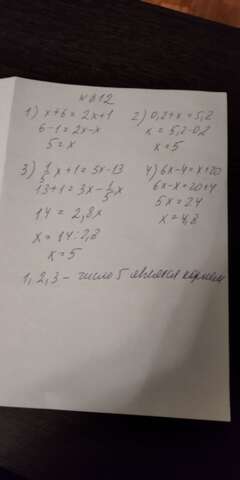 №812
1) x+6=2x+1
6-1=2x-x
5=x
2) 0,2+x=5,2
x=5,2-0,2
x=5
3) 1/5 x+1=3x-13
13+1=3x-1/5x
14=2,8x
x=14:2,8
x=5
4) 6x-4=x+20
6x-x=20+4
5x=24
x=4,8
1,2,3- число 5 является корнем